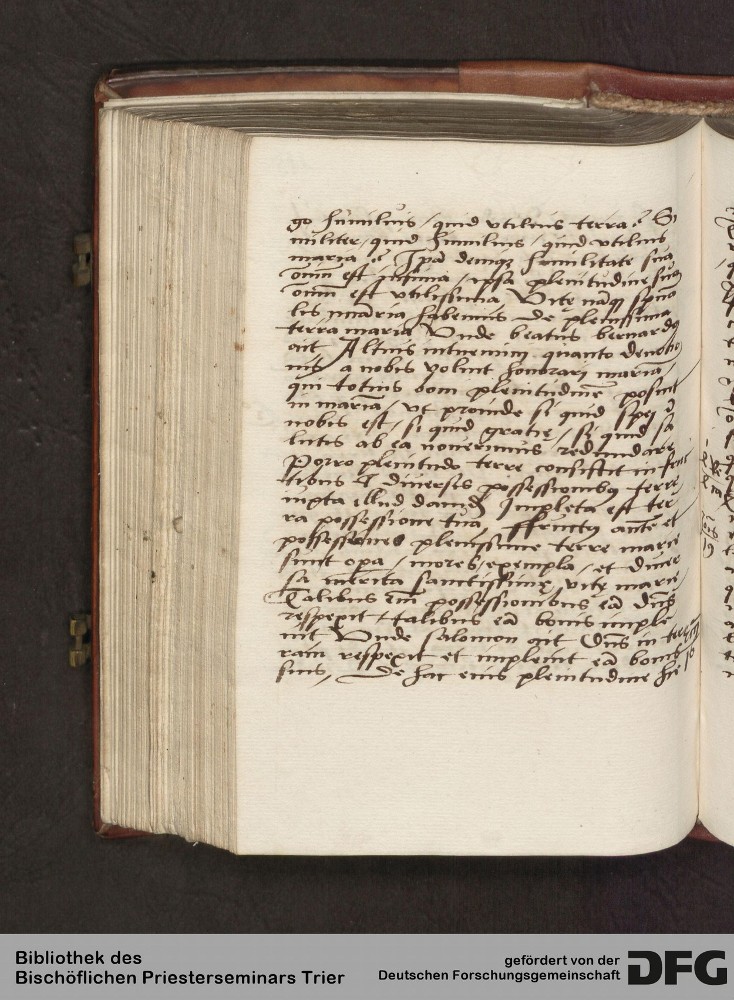 go humilius / quid vtilius terra? Si
militer / quid humilius / quid vtilius
maria? Ipa demq humilitate sua
oim est infima / ipsa plenitudine sua
oim est vtilissima Vite naqз
lis habemus de plenissima
terra maria Vnde beatus bernardꝯ
ait Altius intuemini quanto deuotio
nis a nobis voluit honorari maria,
qui totius boni plenitudinē posuit
in maria, vt proinde si quid spei ī
nobis est, si quid gratię, si quid sa
lutis ab ea nouerimus redundare
Porro plenitudo terre consistit in fruc
tibus & diuersis possessionibꝯ terre
iuxta illud dauid Impleta est ter
ra possessione tua, ffructꝯ autē et
possessiones plenissime terre marie
sunt opa, mores, exempla, et diuer
sa merita sanctissimę vitę marie
Talibus em̄ possessionibus eā dn̄s
respexit & talibus eā bonis imple
uit Vnde salomon ait Dn̄s in ter
ram respexit et impleuit eā bonis
suis, De hac eius plenitudine hie
Bibliothek des
Bischöflichen Priesterseminars Trier
gefördert von der
Deutschen Forschungsgemeinschaft
DFG